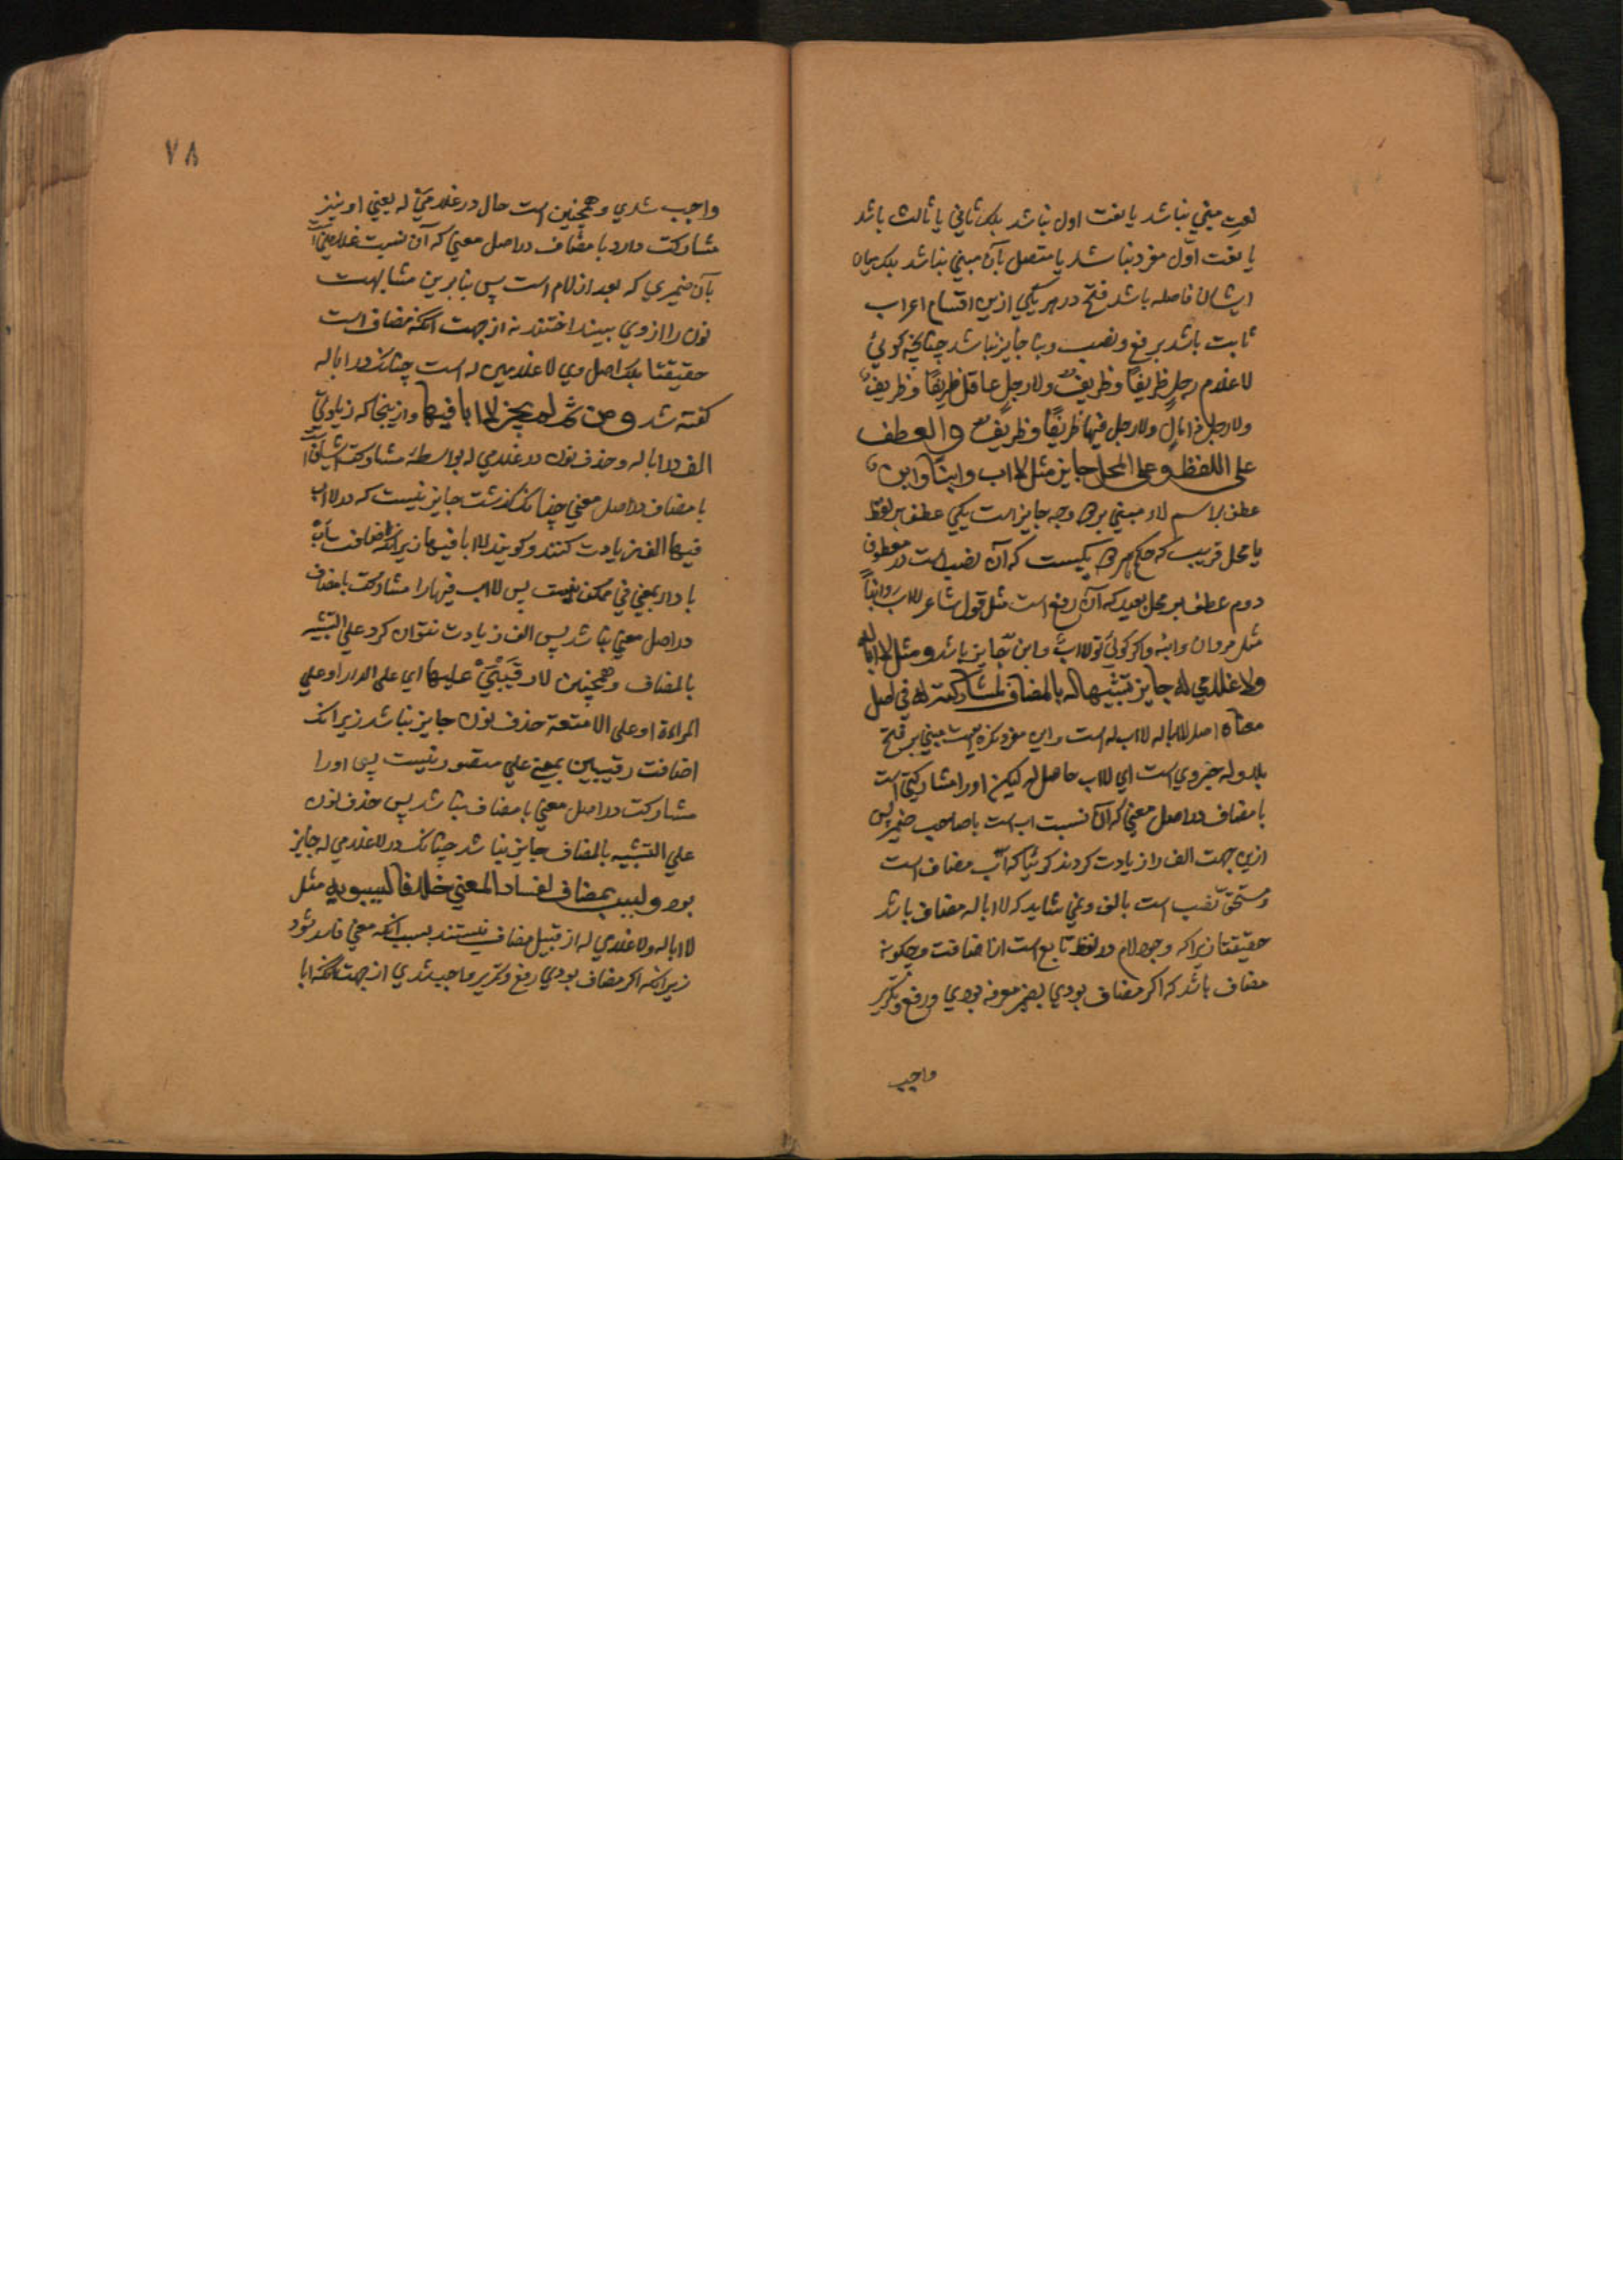 نعت مبني نباشد يا نعت اول نباشد بلكه ثاني يا ثالث باشد
يا نعت اول مفرد نباشد يا متصل بآن مبني نباشد بلكه ميان
ايشان فاصله باشد فتح در هر يكي ازين اقسام اعراب
ثابت باشد برفع ونصب وبنا جايز نباشد چنانچه كوئي
لاغلام رجل ظريفًا وظريفٌ ولارجل عاقل ظريفًا وظريفٌ
ولارجل ولارجل فيها ظريفًا وظريفٌ والعطف
على اللفظ وعلى المحل جايز مثل لااب وابنًا وابنٌ
عطف بر اسم لاء مبني بر دو وجه جايز است يكي عطف بر لفظ
يا محل قريب كه حكم هر دو يكيست كه آن نصب است در معطوف
دوم عطف بر محل بعيد كه آن رفع است مثل قول شاعر لااب وابنًا
مثل مروان وابنه واكر كوئي تو لااب وابن جايز باشد ومثل لاابا له
ولاغلامي له جايز تشبيها له بالمضاف لمشاركته له في اصل
معناه اصل لاابا له لااب له است واين مفرد نكره است مبني بر فتح
بلا وله خبر وي است اي لااب حاصل له ليكن اورا مشاركتي است
با مضاف در اصل معني كه آن نسبت اب است با صاحب ضمير پس
ازين جهت الف را زيادت كردند كوئيا كه اب مضاف است
ومستحق نصب است بالف ونمي شايد كه لاابا له مضاف باشد
حقيقتا زيراكه وجود لام در لفظ تابع است از اضافت وچكونه
مضاف باشد كه اكر مضاف بودي بضمير معرفه بودي ورفع وتكرير
واجب
٧٨
واجب شدي وهمچنين است حال در غلامي له يعني او نيز
مشاركت دارد با مضاف در اصل معني كه آن نسبت غلامين است
بآن ضميري كه بعد از لام است پس بنابرين مشابهت
نون را از وي بينداختند نه از جهت آنكه مضاف است
حقيقتا بلكه اصل وي لاغلامين له است چنانكه در ابا له
كفته شد ومن ثم لم يجز لاابا فيها وازينجا كه زيادتي
الف در ابا له وحذف نون در غلامي له بواسطه مشاركت ايشان است
با مضاف در اصل معني چنانكه كذشت جايز نيست كه در لااب
فيها الف زيادت كنند وكويند لاابا فيها زيراكه اضافت اب
با دار بمعني في ممكن نيست پس لااب فيها را مشاركت با مضاف
در اصل معني نباشد پس الف زيادت نتوان كرد علي التشبيه
بالمضاف وهمچنين لا رقيبَيْ عليها اي على الدار او علي
المراة او على الامتعة حذف نون جايز نباشد زيرا كه
اضافت رقيبين بمعني علي متصور نيست پس اورا
مشاركت در اصل معني با مضاف نباشد پس حذف نون
علي التشبيه بالمضاف جايز نباشد چنانكه در لاغلامي له جايز
بود وليس بمضاف لفساد المعني خلافا لسيبويه مثل
لاابا له ولاغلامي له از قبيل مضاف نيستند بسبب آنكه معني فاسد شود
زيرانكه اكر مضاف بودي رفع وتكرير واجب شدي از جهت آنكه ابا